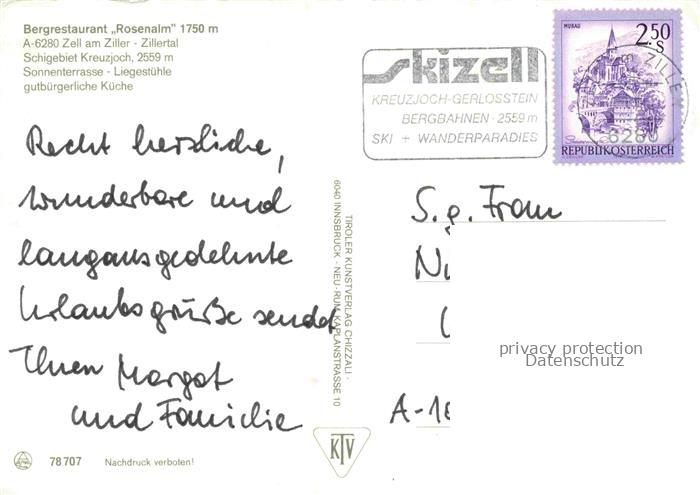 Bergrestaurant „Rosenalm" 1750 m
A-6280 Zell am Ziller - Zillertal
Schigebiet Kreuzjoch, 2559 m
Sonnenterrasse - Liegestühle
gutbürgerliche Küche
skizell
KREUZJOCH-GERLOSSTEIN
BERGBAHNEN · 2559 m
SKI + WANDERPARADIES
MURAU
2.50
S
ZILLER
6280
REPUBLIK ÖSTERREICH
Recht herzliche,
wunderbare und
langausgedehnte
Urlaubsgrüße sendet
Ihnen Margot
und Familie
TIROLER KUNSTVERLAG CHIZZALI ·
6040 INNSBRUCK - NEU-RUM, KAPLANSTRASSE 10
S.g. Frau
A-18
privacy protection
Datenschutz
KTV
78707 Nachdruck verboten!